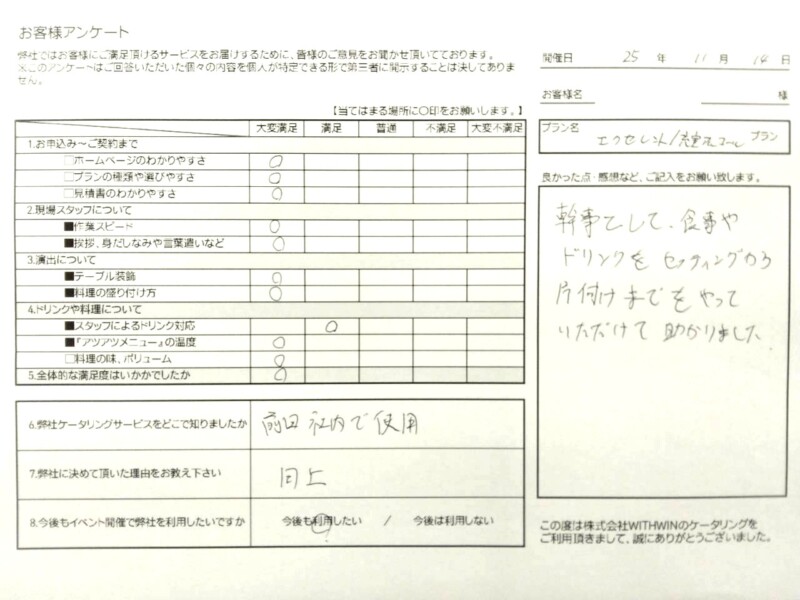 お客様アンケート
弊社ではお客様にご満足頂けるサービスをお届けするために、皆様のご意見をお聞かせ頂いております。
※このアンケートはご回答いただいた個々の内容を個人が特定できる形で第三者に開示することは決してありま
せん。
開催日 25 年 11 月 14 日
お客様名 様
【当てはまる場所に〇印をお願いします。】
大変満足 満足 普通 不満足 大変不満足
プラン名 エクセレント/ プラン
1.お申込み～ご契約まで
□ホームページのわかりやすさ ○
□プランの種類や選びやすさ ○
□見積書のわかりやすさ ○
2.現場スタッフについて
■作業スピード ○
■挨拶、身だしなみや言葉遣いなど ○
3.演出について
■テーブル装飾 ○
■料理の盛り付け方 ○
4.ドリンクや料理について
■スタッフによるドリンク対応 ○
■『アツアツメニュー』の温度 ○
□料理の味、ボリューム ○
5.全体的な満足度はいかがでしたか ○
良かった点・感想など、ご記入をお願い致します。
幹事として、食事や
ドリンクを セッティングから
片付けまでをやって
いただけて 助かりました。
6.弊社ケータリングサービスをどこで知りましたか 前回 社内で使用
7.弊社に決めて頂いた理由をお教え下さい 同上
8.今後もイベント開催で弊社を利用したいですか 今後も利用したい / 今後は利用しない
この度は株式会社WITHWINのケータリングを
ご利用頂きまして、誠にありがとうございました。